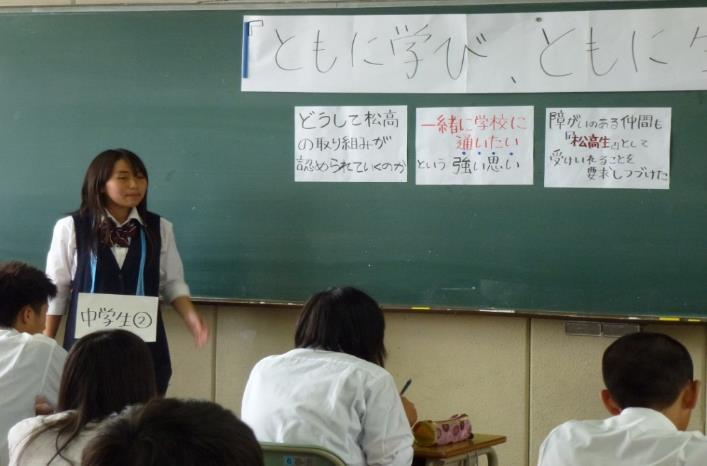 『ともに学び、ともに生
どうして松高
の取り組みが
認められていくのか
一緒に学校に
通いたい
という 強い思い
障がいのある仲間も
「松高生」として
受けいれることを
要求しつづけた
中学生②